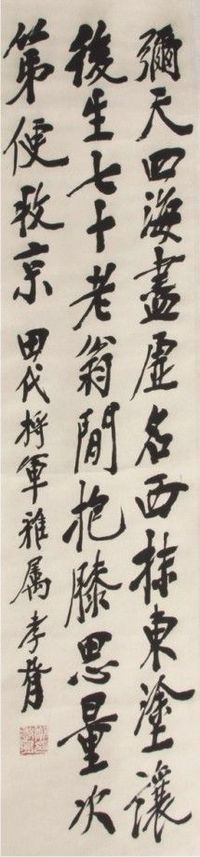 彌天四海盡虛名西抹東塗讓
後生七十老翁閒抱膝思量次
第便收京 田代將軍雅屬 孝胥